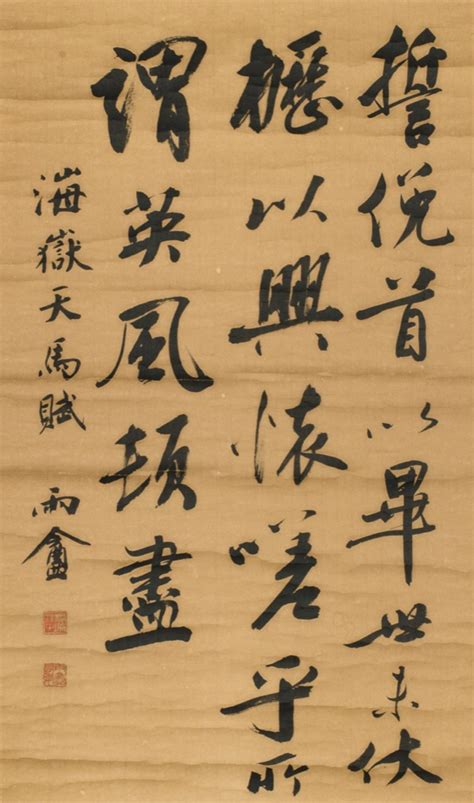 誓俛首以畢世未伏
櫪以興懷嗟乎所
謂英風頓盡
海嶽天馬賦 雨盦